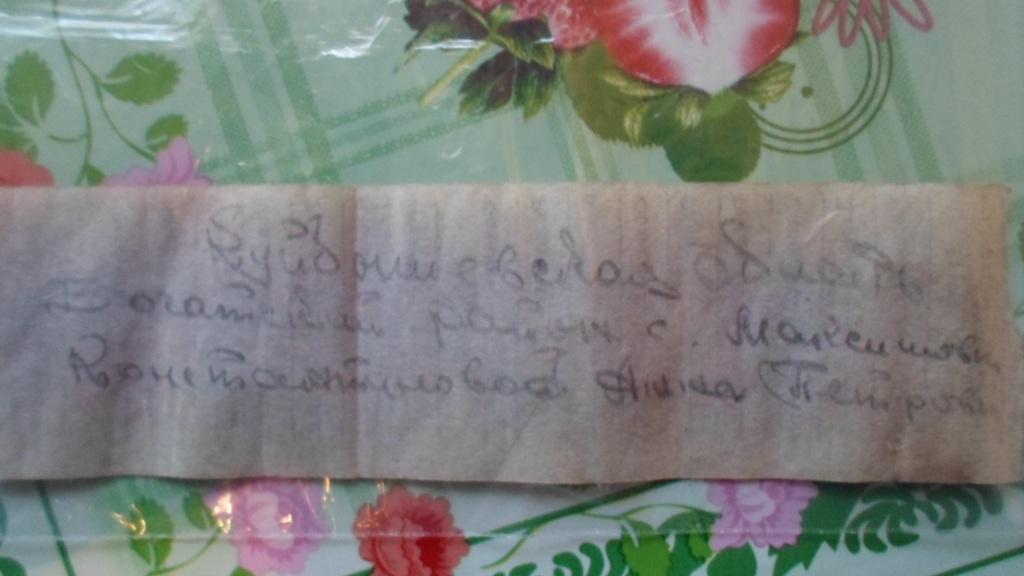 Куйбышевская область
Богатский район с. Максимовк
Константиновой Анна Петров